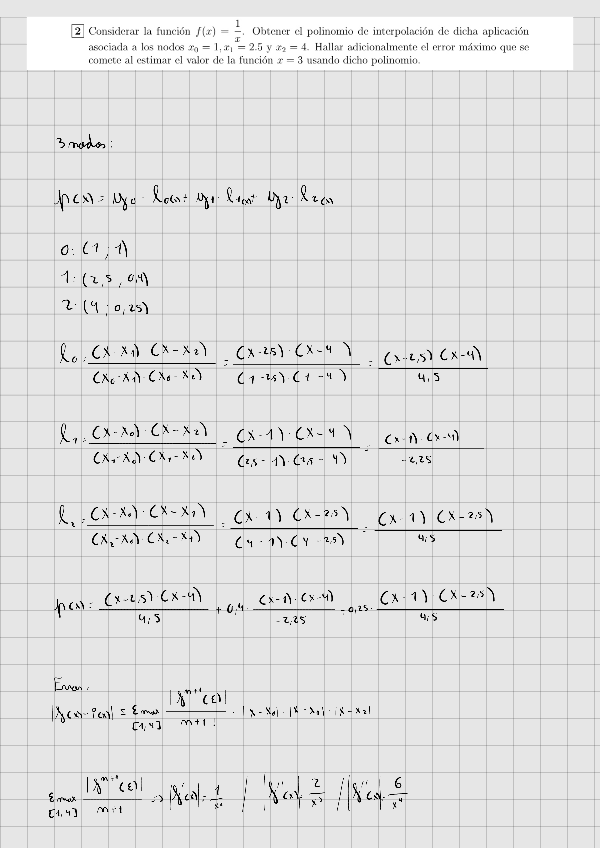 2 Considerar la función f(x) = 1/x. Obtener el polinomio de interpolación de dicha aplicación
asociada a los nodos x₀ = 1, x₁ = 2.5 y x₂ = 4. Hallar adicionalmente el error máximo que se
comete al estimar el valor de la función x = 3 usando dicho polinomio.
3 nodos:
p(x) = y₀ · l₀(x) + y₁ · l₁(x) + y₂ · l₂(x)
0: (1 ; 1)
1: (2,5 ; 0,4)
2: (4 ; 0,25)
l₀ = (x-x₁)·(x-x₂) / (x₀-x₁)(x₀-x₂) = (x-2,5)·(x-4) / (1-2,5)·(1-4) = (x-2,5)(x-4) / 4,5
l₁ = (x-x₀)·(x-x₂) / (x₁-x₀)·(x₁-x₂) = (x-1)·(x-4) / (2,5-1)·(2,5-4) = (x-1)·(x-4) / -2,25
l₂ = (x-x₀)·(x-x₁) / (x₂-x₀)·(x₂-x₁) = (x-1)(x-2,5) / (4-1)·(4-2,5) = (x-1)(x-2,5) / 4,5
p(x) = (x-2,5)·(x-4) / 4,5 + 0,4 · (x-1)·(x-4) / -2,25 + 0,25 · (x-1)(x-2,5) / 4,5
Error:
|f(x)-p(x)| ≤ εmax [1,4] |fⁿ⁺¹(ε)| / n+1! · |x-x₀|·|x-x₁|·|x-x₂|
εmax [1,4] |fⁿ⁺¹(ε)| / n+1 => |f'(x)| = 1/x² / |f''(x)| = 2/x³ / |f'''(x)| = 6/x⁴